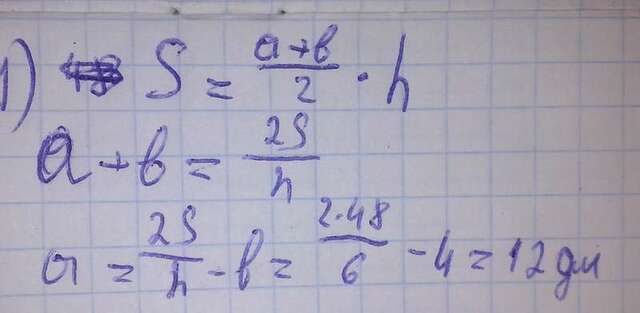 1) S = (a+b)/2 · h
a+b = 2S/h
a = 2S/h - b = 2·48/6 - 4 = 12 дм